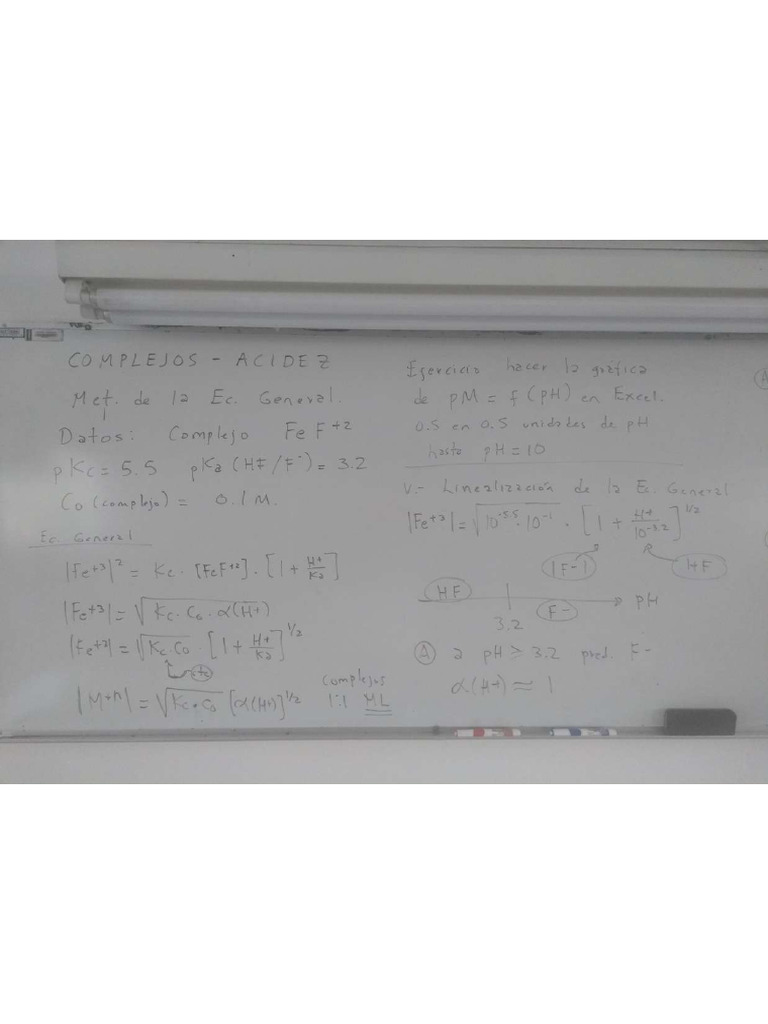 COMPLEJOS - ACIDEZ
Met. de la Ec. General.
Datos: Complejo FeF+2
pKc = 5.5 pKa (HF/F-) = 3.2
Co (complejo) = 0.1 M.
Ec. General
|Fe+3|² = Kc · [FeF+2] · [1 + H+/Ka]
|Fe+3| = √Kc · Co · α(H+)
|Fe+3| = √Kc·Co · [1 + H+/Ka]^1/2
cte
|M+n| = √Kc·Co [α(H+)]^1/2 complejos 1:1 ML
Ejercicio hacer la gráfica
de pM = f(pH) en Excel.
0.5 en 0.5 unidades de pH
hasta pH = 10
V.- Linealización de la Ec. General
|Fe+3| = √10^-5.5 · 10^-1 · [1 + H+/10^-3.2]^1/2
|F-| HF
HF F- pH
3.2
A a pH ≥ 3.2 pred. F-
α(H+) ≈ 1
A